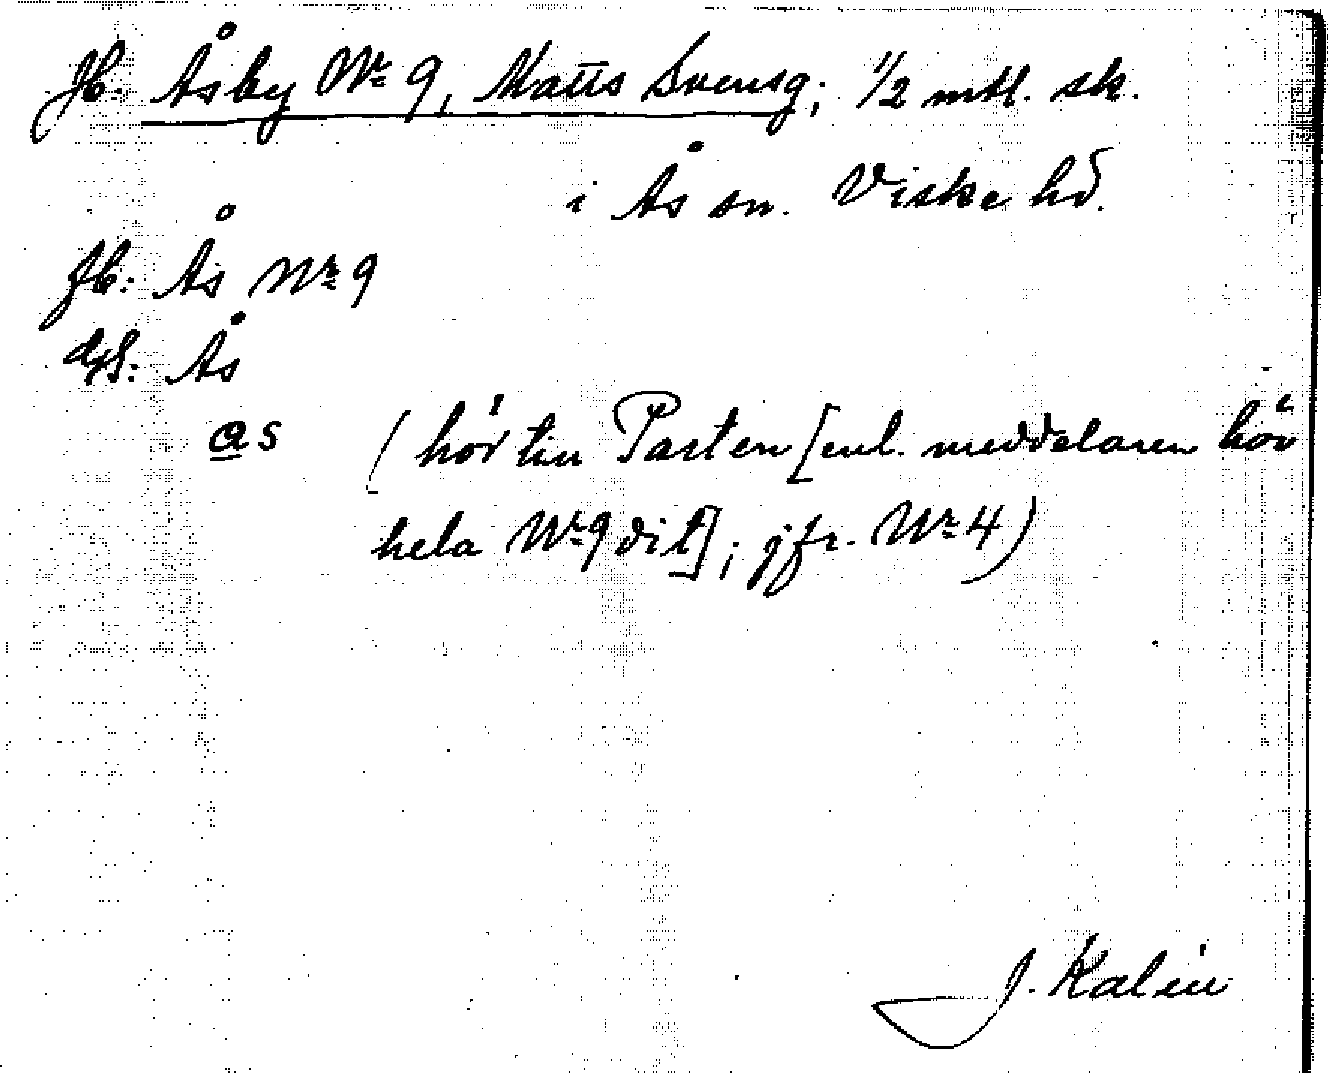 Jb: Åsby Nr 9, Matts Svensg; 1/2 mtl. sk.
i Ås sn. Viske hd.
Jb: Ås Nr 9
Ås
as (hör till Parten [enl. meddelaren hör
hela Nr 9 dit]; jfr. Nr 4)
J. Kalén